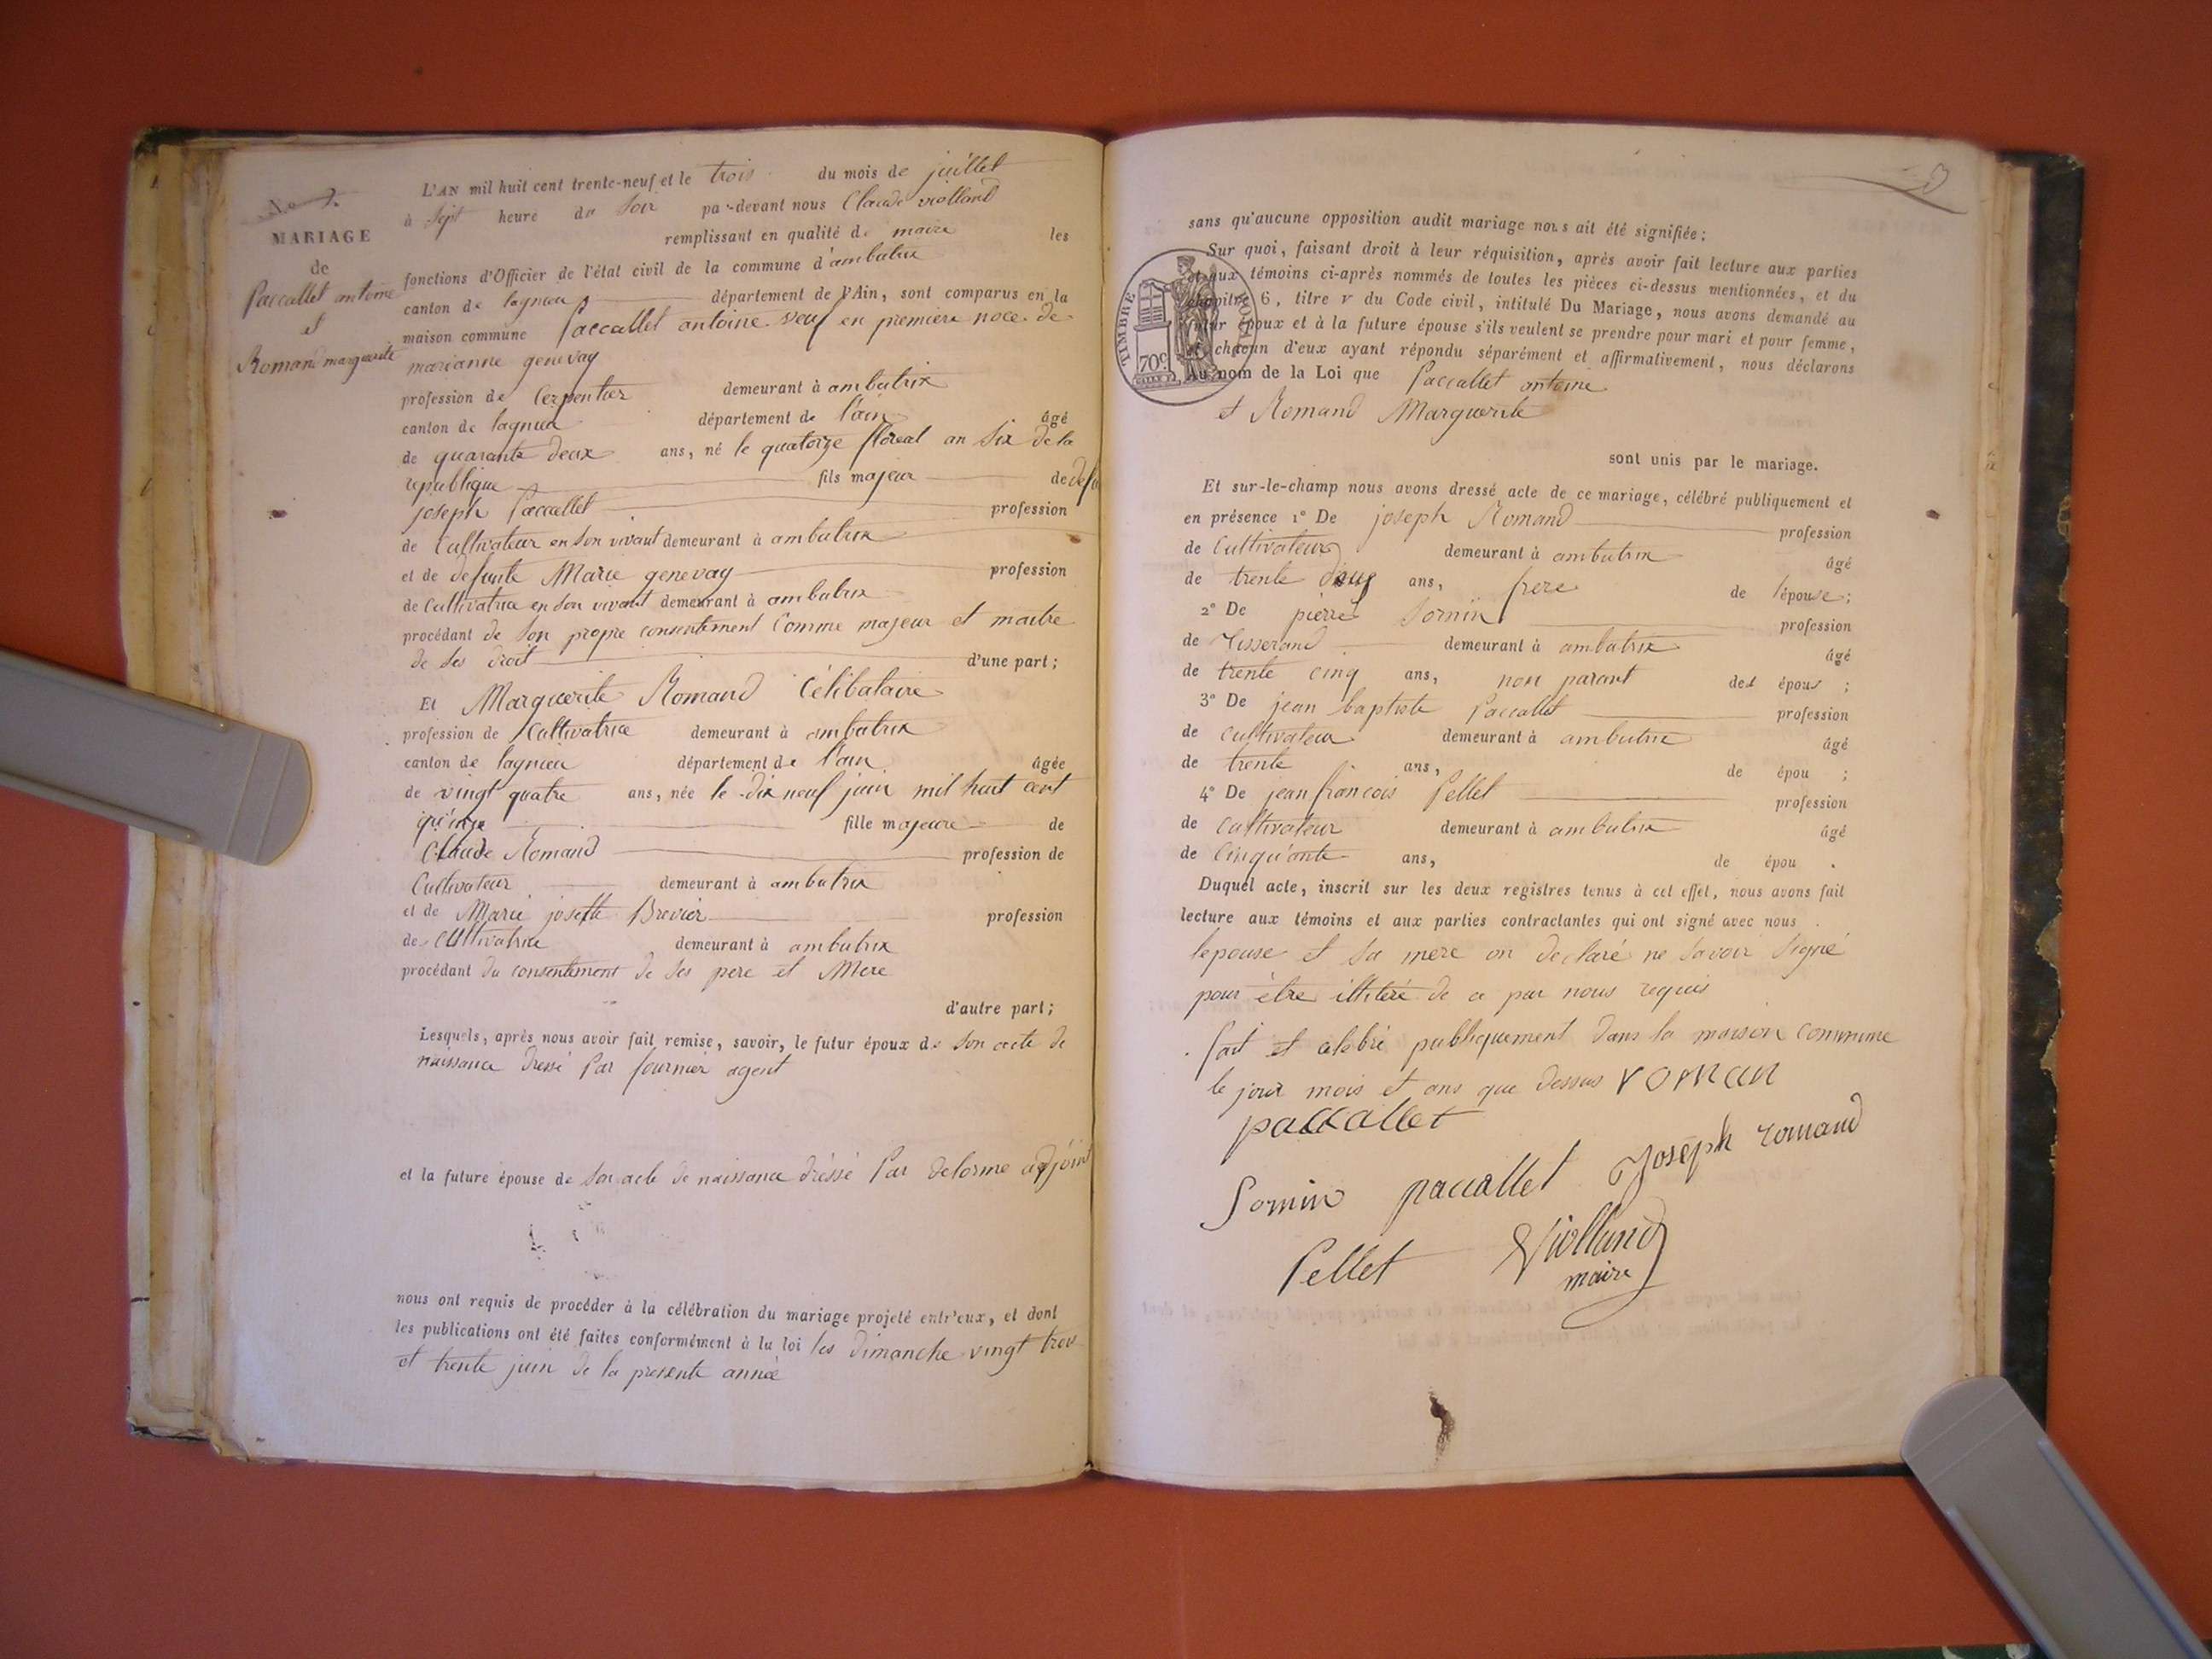 L'AN mil huit cent trente-neuf et le trois du mois de juillet
à sept heure du soir par-devant nous Claude violland
remplissant en qualité de maire les
fonctions d'Officier de l'état civil de la commune d'ambutrix
canton de lagnieu département de l'Ain, sont comparus en la
maison commune Paccallet antoine veuf en premiere noce de
marianne genevay
profession de Cerpentier demeurant à ambutrix
canton de lagnieu département de l'ain âgé
de quarante deux ans, né le quatorze floreal an six de la
republique fils majeur de defu
joseph Paccallet profession
de Cultivateur en son vivant demeurant à ambutrix
et de defunte Marie genevay profession
de Cultivatrice en son vivant demeurant à ambutrix
procédant de son propre consentement Comme majeur et maitre
de ses droit d'une part;
Et Marguerite Romand Célibataire
profession de Cultivatrice demeurant à ambutrix
canton de lagnieu département de l'ain âgée
de vingt quatre ans, née le dix neuf juin mil huit cent
quinze fille majeure de
Claude Romand profession de
Cultivateur demeurant à ambutrix
et de Marie josette Brevier profession
de Cultivatrice demeurant à ambutrix
procédant du consentement de ses pere et Mere
d'autre part;
Lesquels, après nous avoir fait remise, savoir, le futur époux de son acte de
naissance dressé Par fournier agent
et la future épouse de son acte de naissance dréssé Par delorme adjoint
nous ont requis de procéder à la célébration du mariage projeté entr'eux, et dont
les publications ont été faites conformément à la loi les dimanche vingt trois
et trente juin de la presente année
MARIAGE
de
Paccallet antoine
et
Romand marguerite
sans qu'aucune opposition audit mariage nous ait été signifiée;
Sur quoi, faisant droit à leur réquisition, après avoir fait lecture aux parties
et aux témoins ci-après nommés de toutes les pièces ci-dessus mentionnées, et du
chapitre 6, titre v du Code civil, intitulé Du Mariage, nous avons demandé au
futur époux et à la future épouse s'ils veulent se prendre pour mari et pour femme,
et chacun d'eux ayant répondu séparément et affirmativement, nous déclarons
Au nom de la Loi que Paccallet antoine
et Romand Marguerite
TIMBRE ROYAL
70c.
sont unis par le mariage.
Et sur-le-champ nous avons dressé acte de ce mariage, célébré publiquement et
en présence 1° De joseph Romand profession
de Cultivateur demeurant à ambutrix âgé
de trente ans, frere de l'épouse;
2° De pierre Somin profession
de Tisserand demeurant à ambutrix âgé
de trente cinq ans, non parant des épous ;
3° De jean baptiste Paccallet profession
de Cultivateur demeurant à ambutrix âgé
de trente ans, de épou ;
4° De jean francois Pellet profession
de Cultivateur demeurant à ambutrix âgé
de Cinquante ans, de épou .
Duquel acte, inscrit sur les deux registres tenus à cet effet, nous avons fait
lecture aux témoins et aux parties contractantes qui ont signé avec nous
lepouse et sa mere on declaré ne savoir signé
pour être illiteré de ce par nous requis
fait et celebré publiquement dans la maison commune
le jour mois et ans que dessus roman
paccallet
Joseph romand
Somin paccallet
Pellet Violland
maire